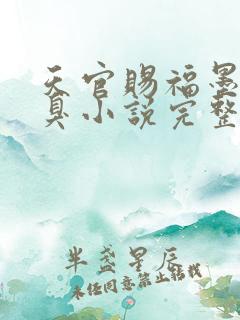 天官赐福墨
真小说完整
半盏星辰
未经同意禁止转载